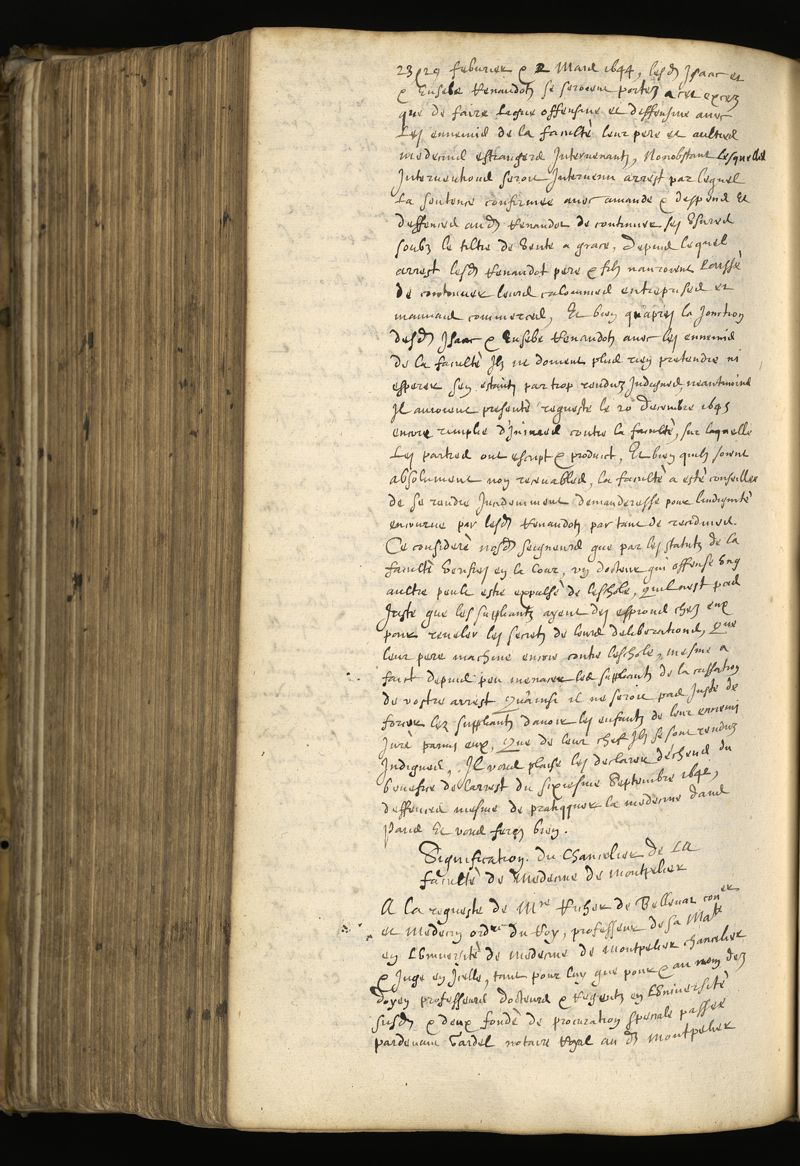 23 / 29 feburier & 2 Mars 1644, lesd Isaac et
& Eusebe Renaudotz se seroient portez a cet excez
que de faire ligue offensiue et deffensiue auec
Les ennemis de la faculté leur pere et aultres
medecins estrangers Interuenants, Nonobstant lesquelles
Interuentions seroit Interuenu arrest par lequel
La sentence confirmee auec amande & despens Et
deffences aud Renaudot de continuer ses Vsures
soubz le tiltre de Vente a grace, Depuis lequel
arrest lesd Renaudot pere & filz nauroient Laissé
de continuer leurs calomnies entreprises et
mauuais commerces, Et bien qu'apres la Jonction
desd Isaac & Eusebe Renaudotz auec les ennemis
de la faculté Ilz ne doiuent plus rien pretendre ni
esperer sen estants par trop renduz Indignes, neantmoins
Il auroient presenté requeste le 20 decembre 1645
encore remplie d'Iniures contre la faculté, sur laquelle
Les parties ont escript & produict, Et bien quils soient
absolument non receuables, la faculté a esté conseillee
de se rendre Incidemment demanderesse pour l'indignité
encourue par lesd Renaudotz par tant de recidiues.
Ce consideré nosd seigneurs que par les statutz de la
faculté Verifiez en la Cour, vn docteur qui offense Vng
aultre peult estre expulsé de leschole, quil nest pas
Juste que les suppliants ayent des espions chez eux
pour reueler les secretz de leurs deliberations, Que
leur pere machine encore contre leschole, mesme a
faict depuis peu menacer les suppliants de la cassation
de vostre arrest, Qu'ainsi il ne seroit pas Juste de
forcer les suppliants dauoir les enfants de leur ennemi
Juré parmi eux, Que de leur chef Ilz se sont renduz
Indignes, Il vous plaise les declarer décheus du
benefice de larrest du sixiesme Septembre 1642,
deffences mesme de pratiquer la medecine dans
Paris Et vous ferez bien.
Signification du Chancelier de LA
faculté de Medecine de Montpelier
A la requeste de Mre Richer de Belleual coner
et Medecin ordre du Roy, professeur de sa Maté
en L'Vniuersité de Medecine de Montpelier chancelier
& Juge en Icelle, tant pour luy que pour & au nom des
doyen professeurs docteurs & Regents en L'Vniuersité
susd & deux fondé de procuration speciale passee
pardeuant Vardel notaire Royal aud Montpelier